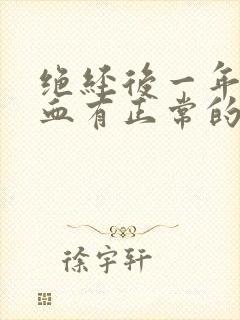 绝经後一年
血有正常的
徐宇轩